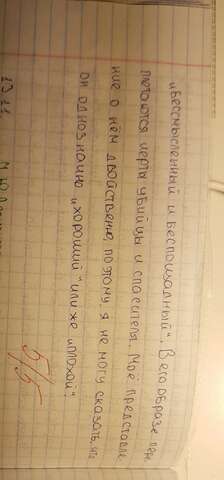 „бессмысленный и беспощадный“. В его образе пере
плетаются черты убийцы и спасителя. Моё представле
ние о нём двойственно, поэтому я не могу сказать, что
он однозначно „хороший“ или же „плохой“.
5/5
19.11